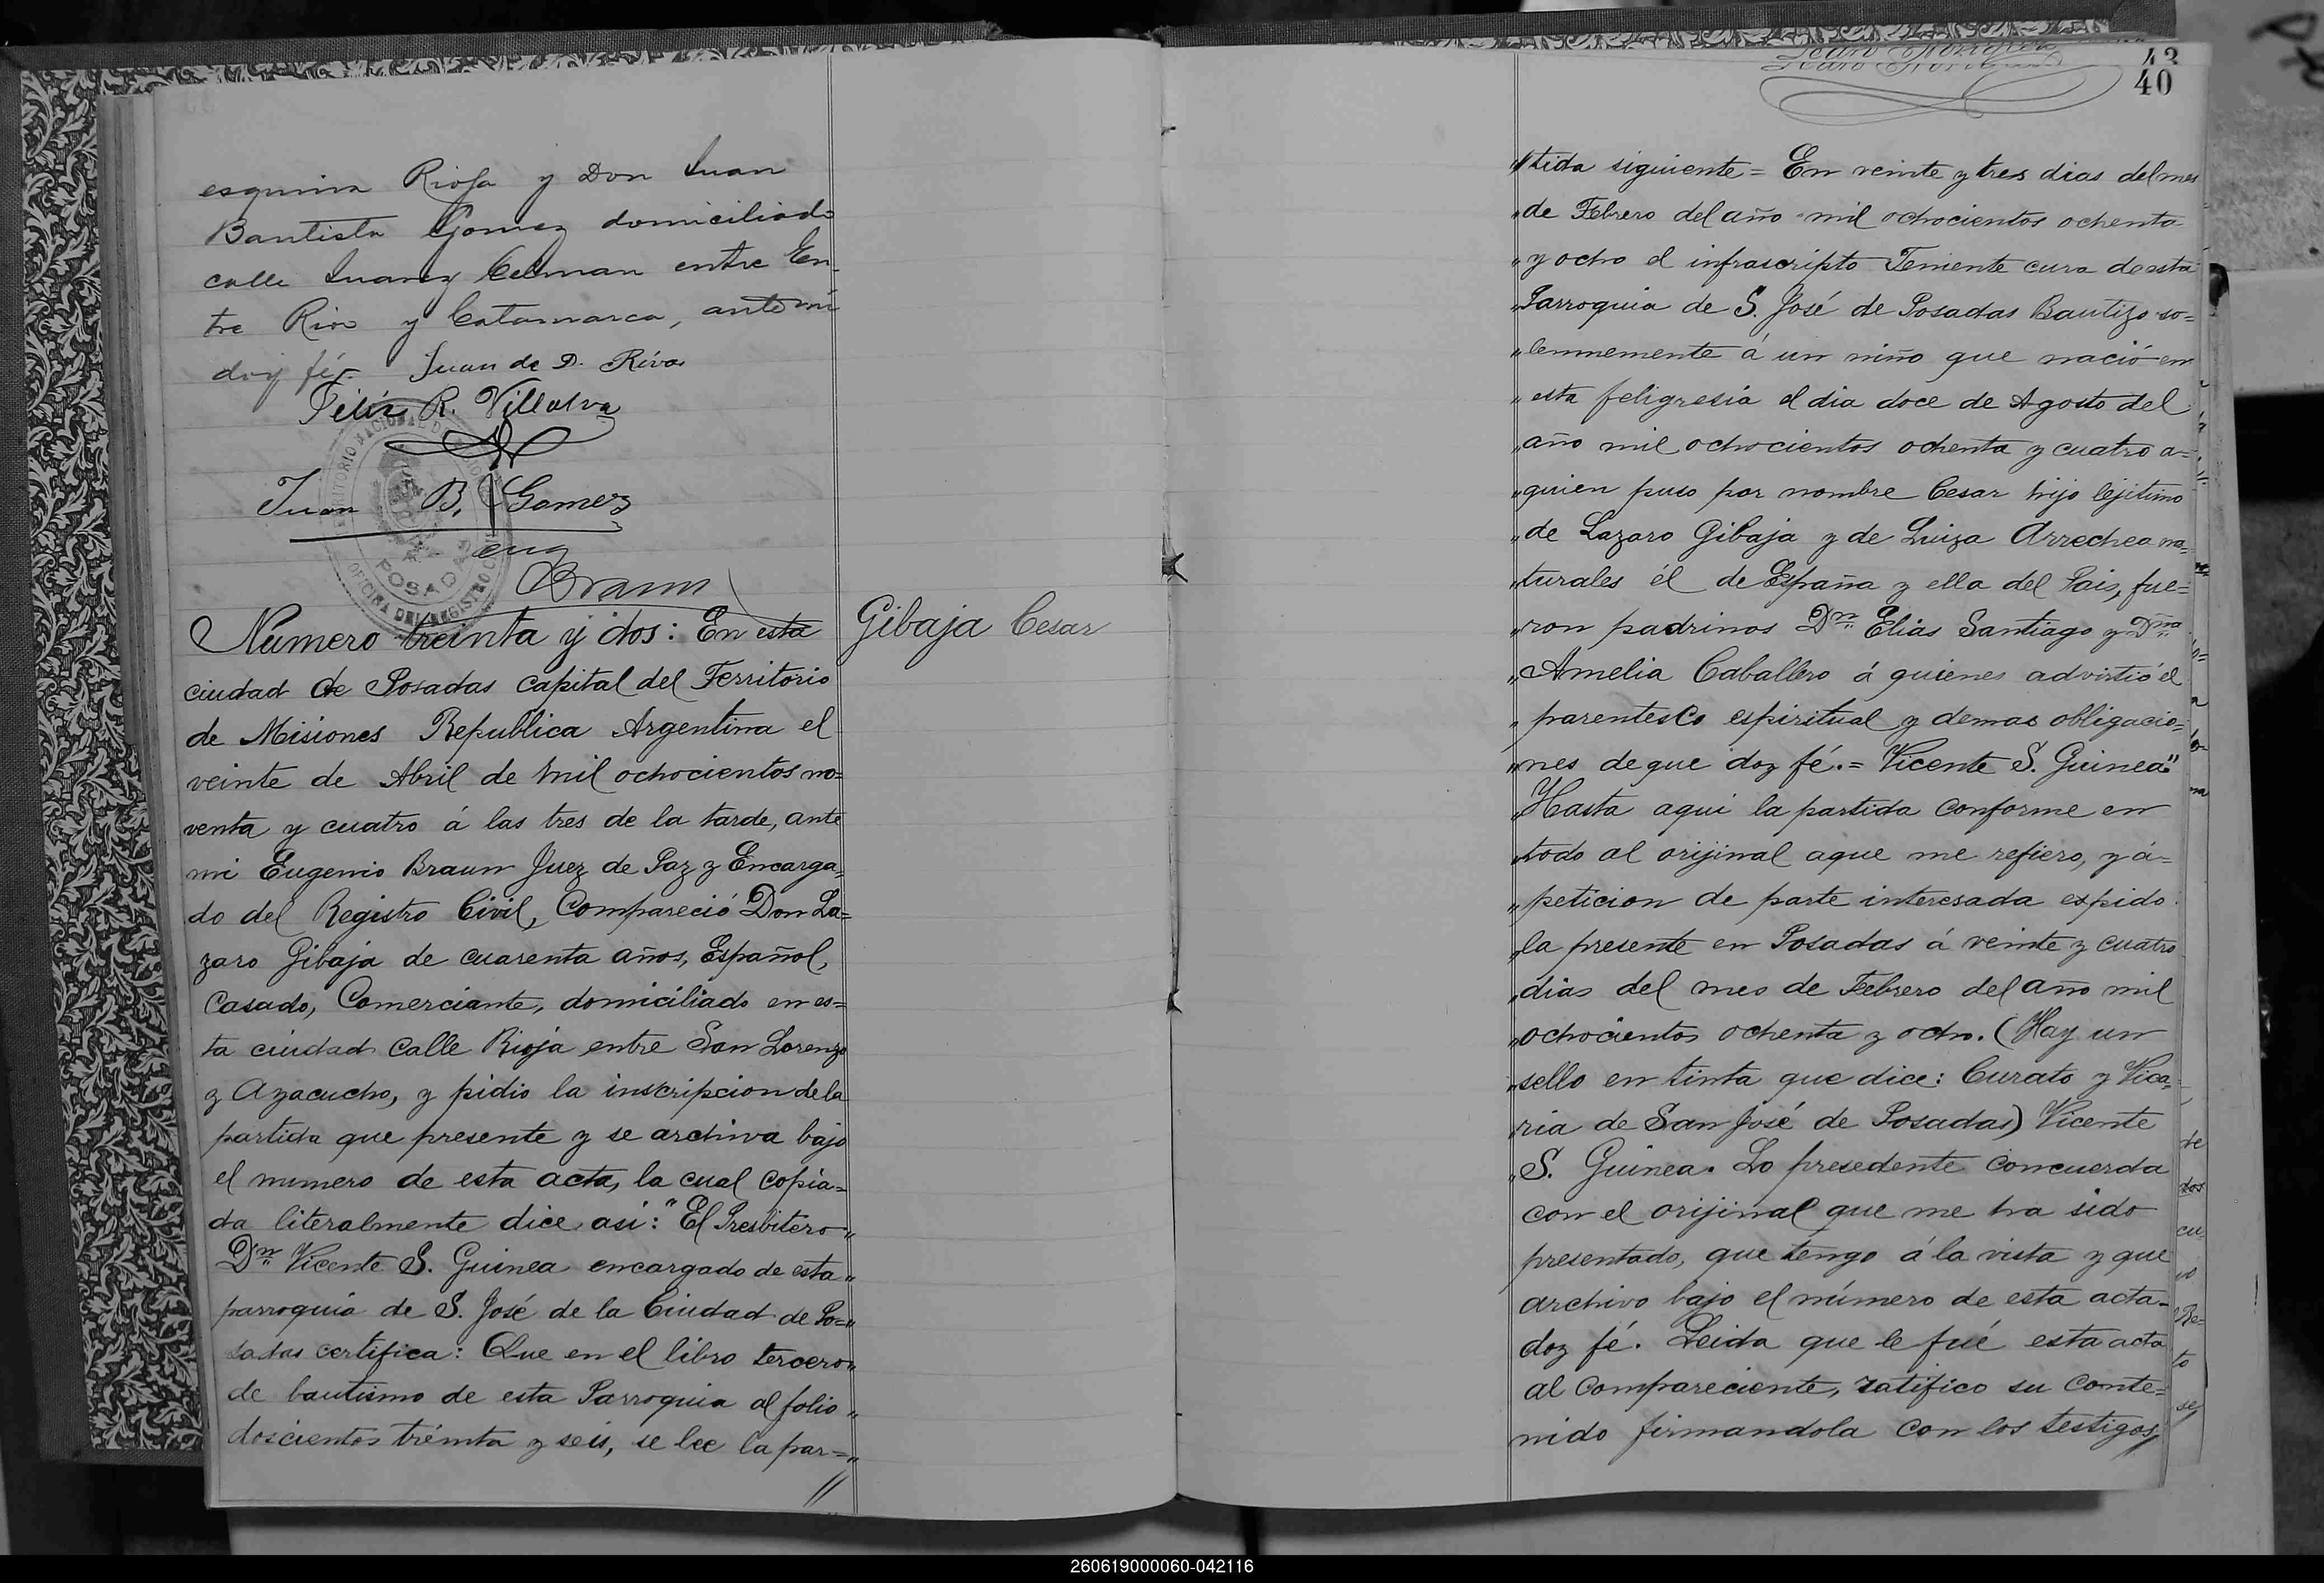 esquina Rioja y Don Juan
Bautista Gomez domiciliado
calle Juarez Celman entre En-
tre Rios y Catamarca, ante mi
doy fé. Juan de D. Rivas
Félix R. Villalva
Juan B. Gomez
eug
Braun
TERRITORIO NACIONAL DE
POSADAS
OFICINA DEL REGISTRO CIVIL
Numero treinta y dos: En esta
Gibaja Cesar
ciudad de Posadas capital del Territorio
de Misiones Republica Argentina el
veinte de Abril de mil ochocientos no=
venta y cuatro á las tres de la tarde, ante
mi Eugenio Braun Juez de Paz y Encarga=
do del Registro Civil, Compareció Don La=
zaro Gibaja de cuarenta años, Español,
Casado, Comerciante, domiciliado en es=
ta ciudad calle Rioja entre San Lorenzo
y Ayacucho, y pidio la inscripcion de la
partida que presente y se archiva bajo
el numero de esta acta, la cual copia=
da literalmente dice asi: "El Presbitero "
Dn Vicente S. Guinea encargado de esta "
parroquia de S. José de la Ciudad de Po= "
sadas certifica: Que en el libro tercero "
de bautismo de esta Parroquia al folio "
doscientos treinta y seis, se lee la par= "
43
40
"tida siguiente = En veinte y tres dias del mes
"de Febrero del año mil ochocientos ochenta
"y ocho el infrascripto Teniente cura de esta
"Parroquia de S. José de Posadas Bautizo so=
"lemnemente á un niño que nació en
"esta feligresia el dia doce de Agosto del
"año mil ochocientos ochenta y cuatro a=
"quien puso por nombre Cesar hijo lejitimo
"de Lazaro Gibaja y de Luiza Arrechea na=
"turales él de España y ella del Pais, fue=
"ron padrinos Dn Elias Santiago y Dña
"Amelia Caballero á quienes advirtió el
"parentesco espiritual y demas obligacio=
"nes de que doy fé. = Vicente S. Guinea"
"Hasta aqui la partida conforme en
"todo al orijinal aque me refiero, y á=
"peticion de parte interesada espido
"la presente en Posadas á veinte y cuatro
"dias del mes de Febrero del año mil
"ochocientos ochenta y ocho. (Hay un
"sello en tinta que dice: Curato y Vica=
"ria de San José de Posadas) Vicente
"S. Guinea. Lo presedente concuerda
con el orijinal que me ha sido
presentado, que tengo á la vista y que
archivo bajo el número de esta acta-
doy fé. Leida que le fué esta acta
al Compareciente, ratifico su conte=
nido firmandola con los testigos
260619000060-042116